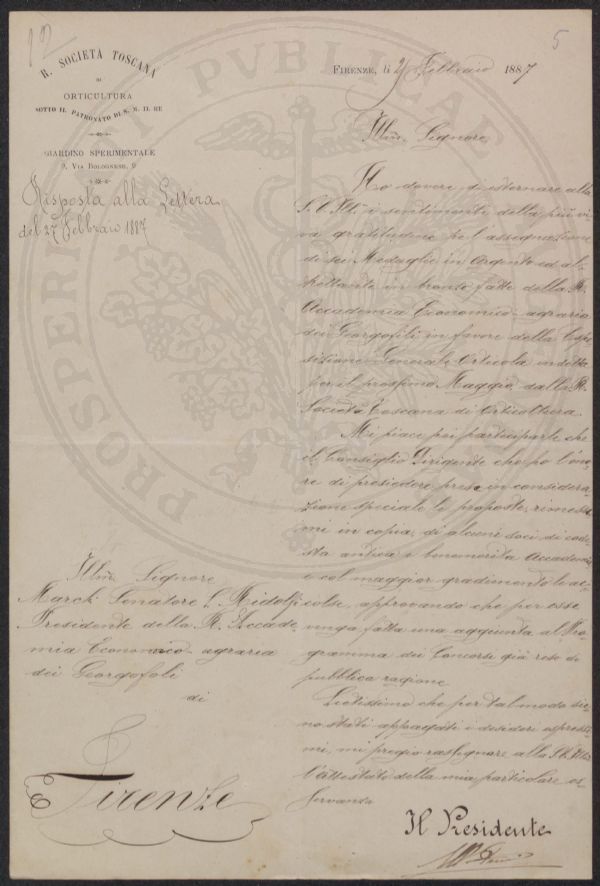 R. SOCIETÀ TOSCANA
DI
ORTICULTURA
SOTTO IL PATRONATO DI S. M. IL RE
GIARDINO SPERIMENTALE
9, VIA BOLOGNESE, 9
Risposta alla Lettera
del 27 Febbraio 1887
5
FIRENZE, li Febbraio 1887
Illmo. Signore,
Ho dovere di esternare alla
S. V. Illma. i sentimenti della più vi
va gratitudine pel l'assegnazione
di sei Medaglie in Argento ed al
trettante in bronzo fatte dalla R.
Accademia Economico-agraria
dei Georgofili in favore della Espo
sizione Generale Orticola indetta
per il prossimo Maggio dalla R.
Società Toscana di Orticultura.
Mi piace poi parteciparle che
il Consiglio Dirigente che ho l'ono
re di presiedere, prese in considera
zione speciale le proposte, rimesse
mi in copia, di alcuni soci di code
sta antica e benemerita Accademia
e col maggior gradimento le ac
colse, approvando che per esse
venga fatta una aggiunta al Pro
gramma dei Concorsi già reso di
pubblica ragione.
Lietissimo che per tal modo sie
no stati appagati i desideri espressi
mi, mi pregio rassegnare alla S. V. Illma.
l'attestato della mia particolare os
servanza
Il Presidente
Illmo. Signore
March. Senatore L. Ridolfi
Presidente della R. Accade
mia Economico-agraria
dei Georgofoli
di
Firenze
PROSPERITATI PVBLICAE